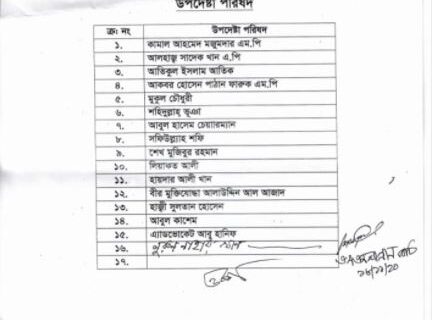 উপদেষ্টা পরিষদ
ক্রঃ নং উপদেষ্টা পরিষদ
১. কামাল আহমেদ মজুমদার এম.পি
২. আলহাজ্ব সাদেক খান এ.পি
৩. আতিকুল ইসলাম আতিক
৪. আকবর হোসেন পাঠান ফারুক এম.পি
৫. মুকুল চৌধুরী
৬. শহিদুল্লাহ্ ভূঞা
৭. আবুল হাসেম চেয়ারম্যান
৮. সফিউল্ল্যাহ শফি
৯. শেখ মুজিবুর রহমান
১০. লিয়াকত আলী
১১. হায়দার আলী খান
১২. বীর মুক্তিযোদ্ধা আলাউদ্দিন আল আজাদ
১৩. হাজ্বী সুলতান হোসেন
১৪. আবুল কাশেম
১৫. এ্যাডভোকেট আবু হানিফ
১৬.
১৭.